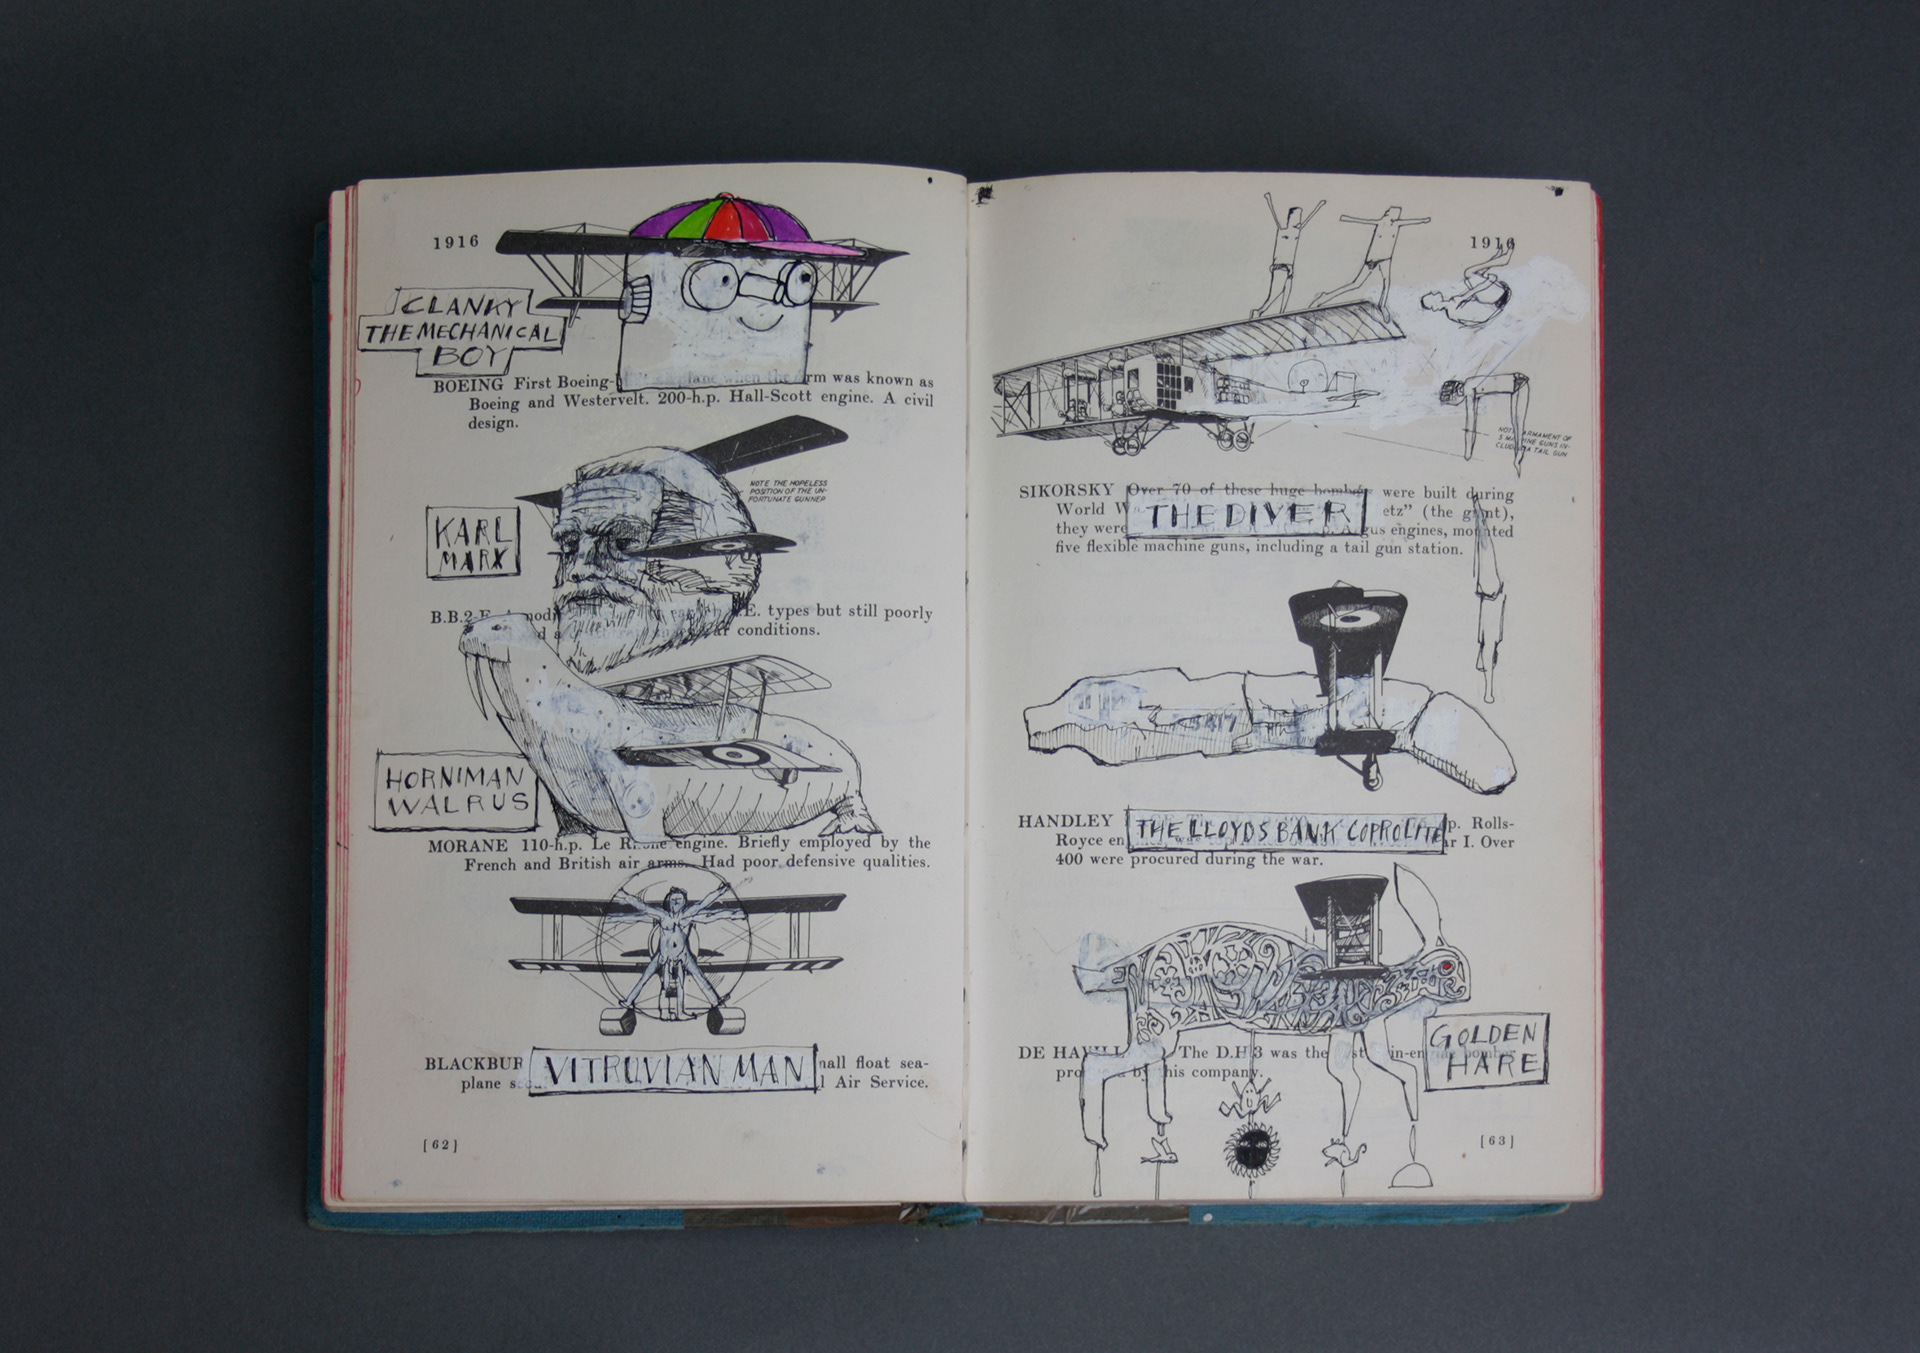 1916
CLANKY
THE MECHANICAL
BOY
BOEING First Boeing- plane when the firm was known as
Boeing and Westervelt. 200-h.p. Hall-Scott engine. A civil
design.
NOTE THE HOPELESS
POSITION OF THE UN-
FORTUNATE GUNNER
KARL
MARX
B.B.2.E. A types but still poorly
conditions.
HORNIMAN
WALRUS
MORANE 110-h.p. Le Rhone engine. Briefly employed by the
French and British air arms. Had poor defensive qualities.
BLACKBUR small float sea-
plane l Air Service.
VITRUVIAN MAN
[62]
1916
NOTE ARMAMENT OF
5 MACHINE GUNS IN-
CLUDING A TAIL GUN
SIKORSKY Over 70 of these huge bombers were built during
World W etz" (the giant),
they were p. Argus engines, mounted
five flexible machine guns, including a tail gun station.
THE DIVER
HANDLEY p. Rolls-
Royce en ar I. Over
400 were procured during the war.
THE LLOYDS BANK COPROLITE
DE HAVILL The D.H.3 was the in-engine bomber
by this company.
GOLDEN
HARE
[63]